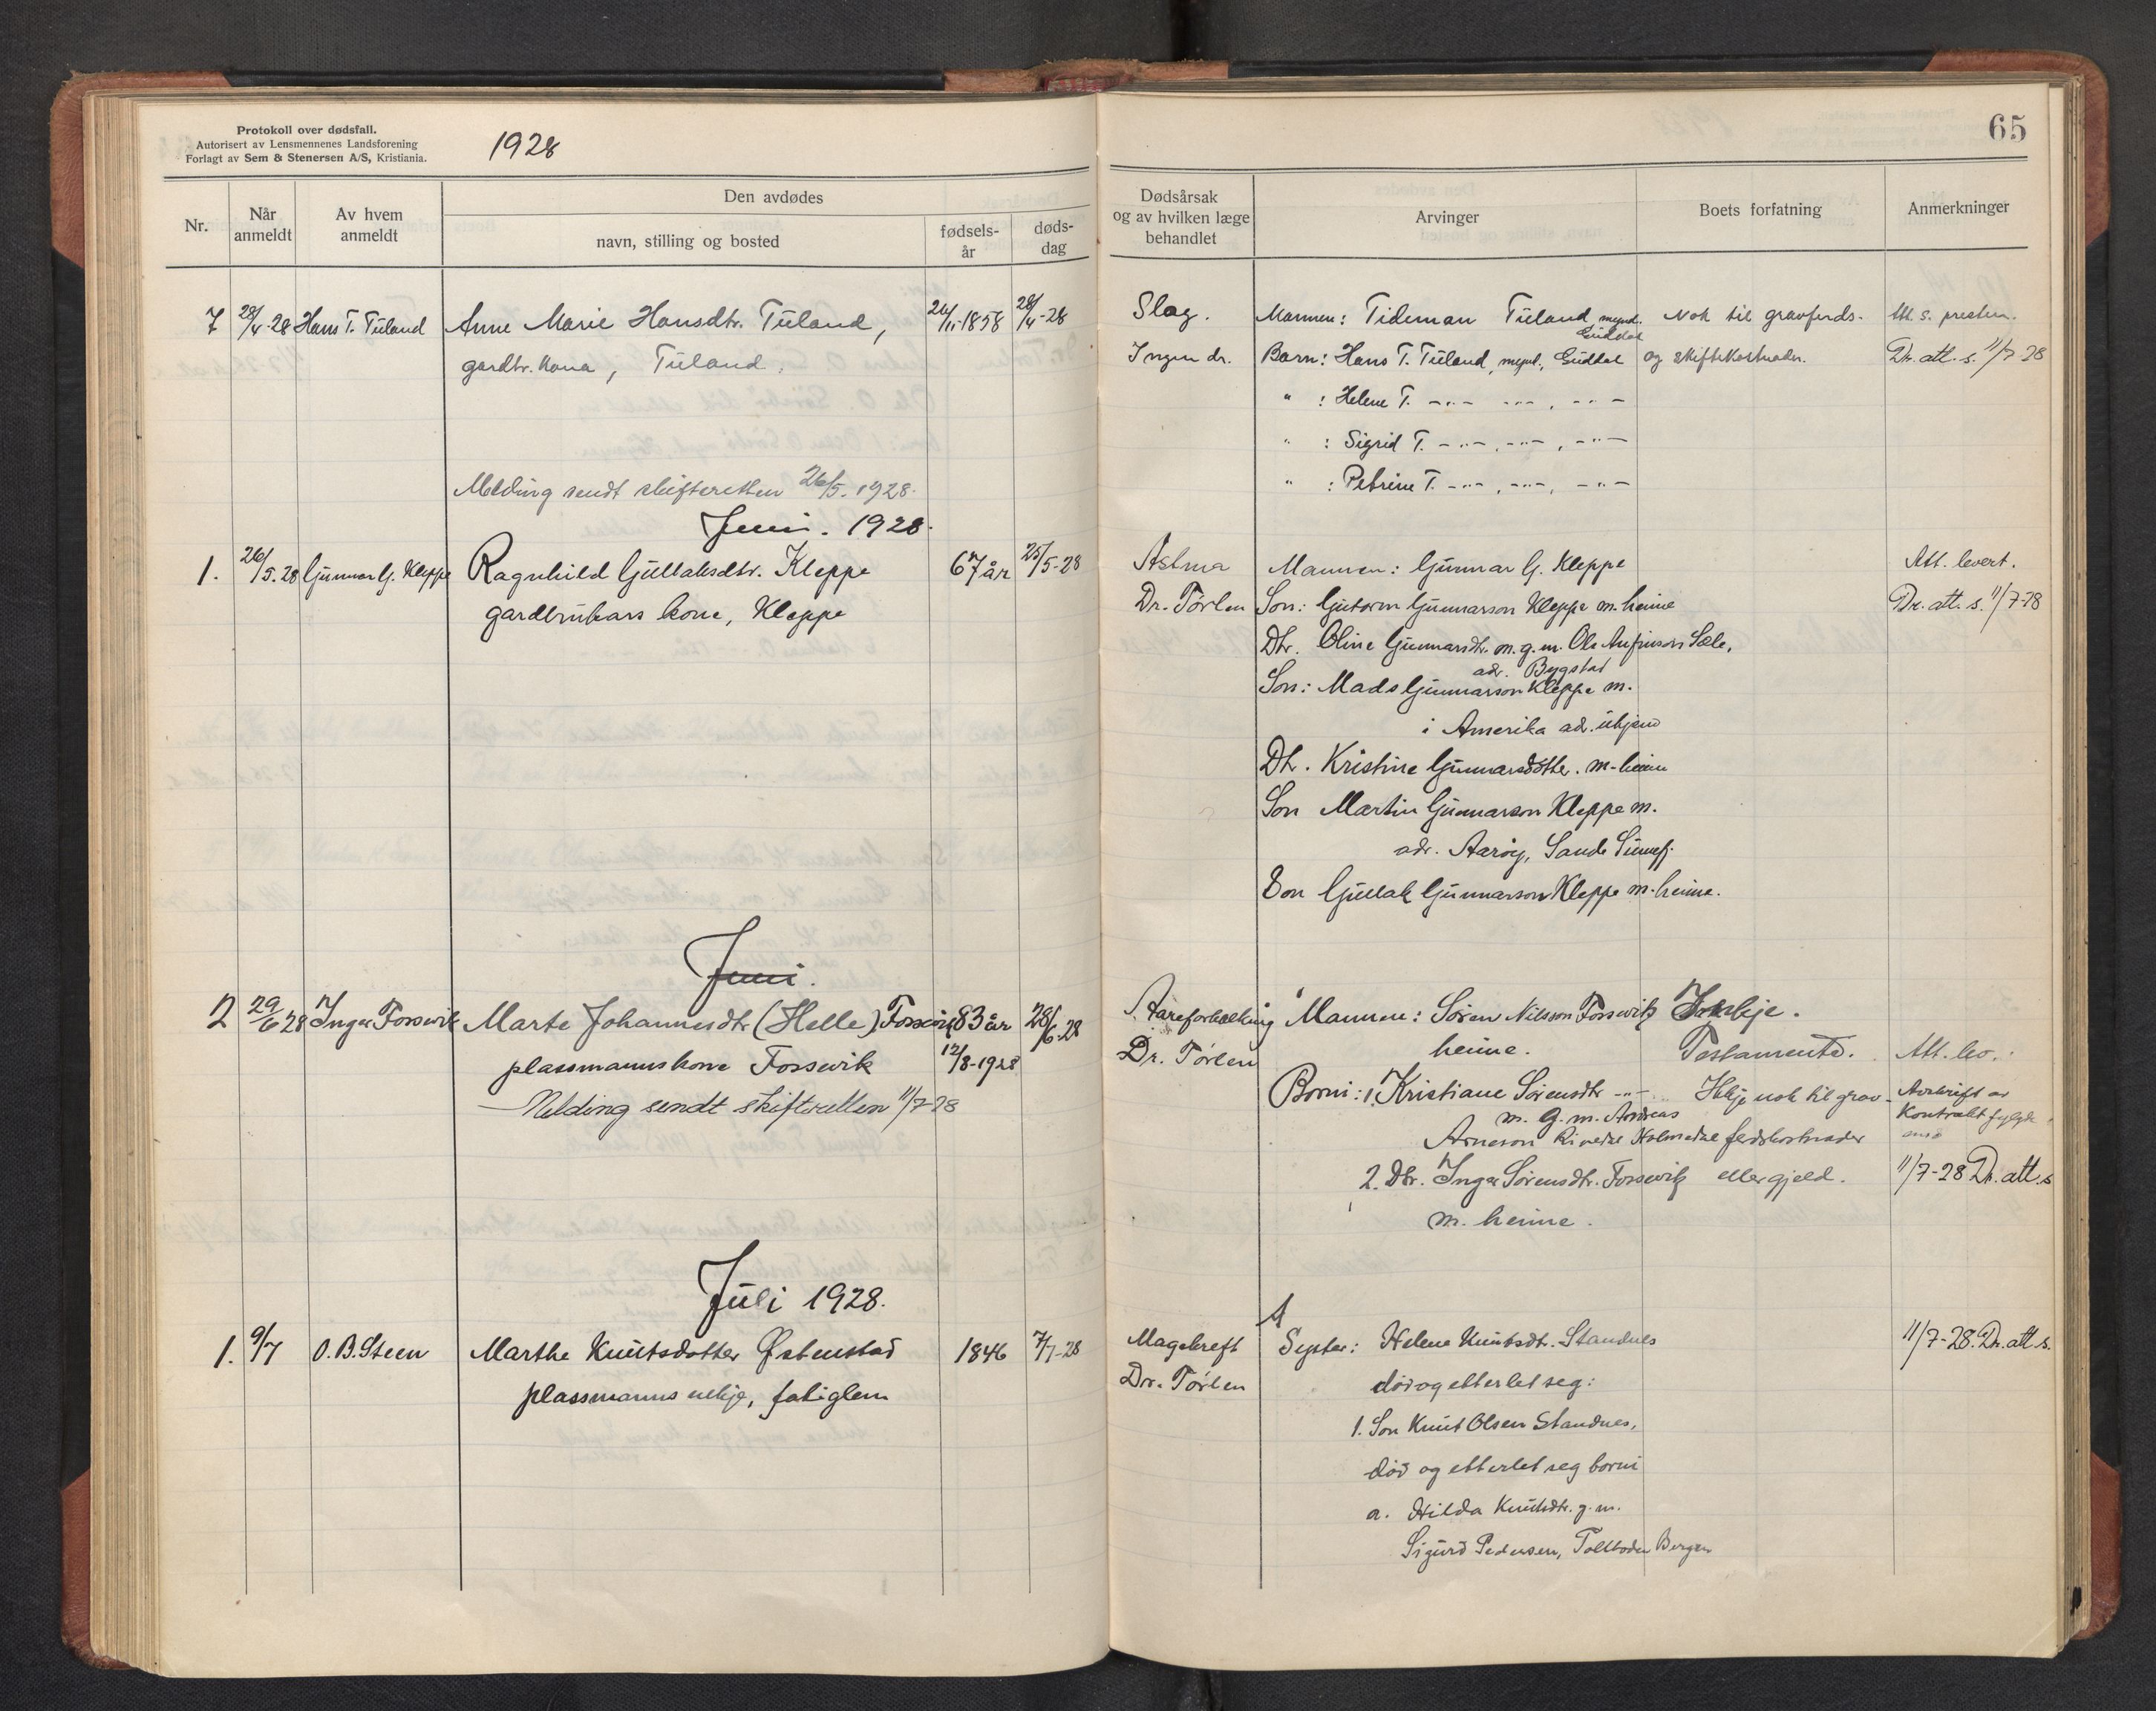 Protokoll over dødsfall.
Autorisert av Lensmennenes Landsforening
Forlagt av Sem & Stenersen A/S, Kristiania.
1928
Nr.
Når anmeldt
Av hvem anmeldt
Den avdødes
navn, stilling og bosted
fødsels-år
døds-dag
7 28/4-28 Hans T. Tuland Anne Marie Hansdtr. Tuland, 24/11-1858 28/4-28
gardbr. kona, Tuland.
Melding sendt skifteretten 26/5. 1928.
Juni. 1928.
1. 26/5.28 Gunnar G. Kleppe Ragnhild Gullaksdtr. Kleppe 67 år 25/5-28
gardbrukars kone, Kleppe
Juni.
2 29/6 28 Inga Fossevik Marte Johannesdtr (Helle) Fossevik 83 år 28/6.28
plassmannskone Fossevik 12/8-1928
Melding sendt skifteretten 11/7-28
Juli 1928.
1. 9/7 O. B. Steen Marthe Knutsdotter Østenstad 1846 7/7-28
plassmanns enkje, fatiglem
65
Dødsårsak og av hvilken læge behandlet
Arvinger
Boets forfatning
Anmerkninger
Slag. Mannen: Tideman Tuland mynd. Nok til gravferds- Att. s. presten.
Guddal
Ingen dr. Barn: Hans T. Tuland, mynd., Guddal og skiftekostnader. Dr. att. s. 11/7-28
" : Helene T. -"- -"-, -"-
" : Sigrid T. -"-, -"-, -"-
" : Petrine T. -"-, -"-, -"-
Astma Mannen: Gunnar G. Kleppe Att. levert.
Dr. Tørlen Son: Gutorm Gunnarson Kleppe m. heime Dr. att. s. 11/7-28
Dtr. Oline Gunnarsdtr. m. g. m. Ole Anfinson Sæle,
adr. Bygstad
Son: Mads Gunnarson Kleppe m.
i Amerika adr. ukjend
Dtr. Kristine Gunnarsdotter. m-heime
Son Martin Gunnarson Kleppe m.
adr. Aarøy, Sande Sunnfj.
Son Gullak Gunnarson Kleppe m. heime.
Aareforkalkning Mannen: Søren Nilsson Fossevik
heime. Testamente. Att. lev.
Dr. Tørlen
Borni: 1. Kristiane Sørensdtr -"- Ikkje nok til grav- Avskrift av
m. g. m. Andreas Kontrakt fylgde
Arneson Rivedal Holmedal ferdskostnader med
2. Dtr. Inga Sørensdtr. Fossevik eller gjeld. 11/7-28 Dr. att. s
m. heime.
A
Magekreft Syster: Helene Knutsdtr. Standnes 11/7-28. Dr. att s.
Dr. Tørlen død og etterlet seg:
1. Son Knut Olsen Standnes,
død og etterlet seg borni
a. Hilda Knutsdtr. g. m.
Sigurd Pedersen, Tollboden Bergen